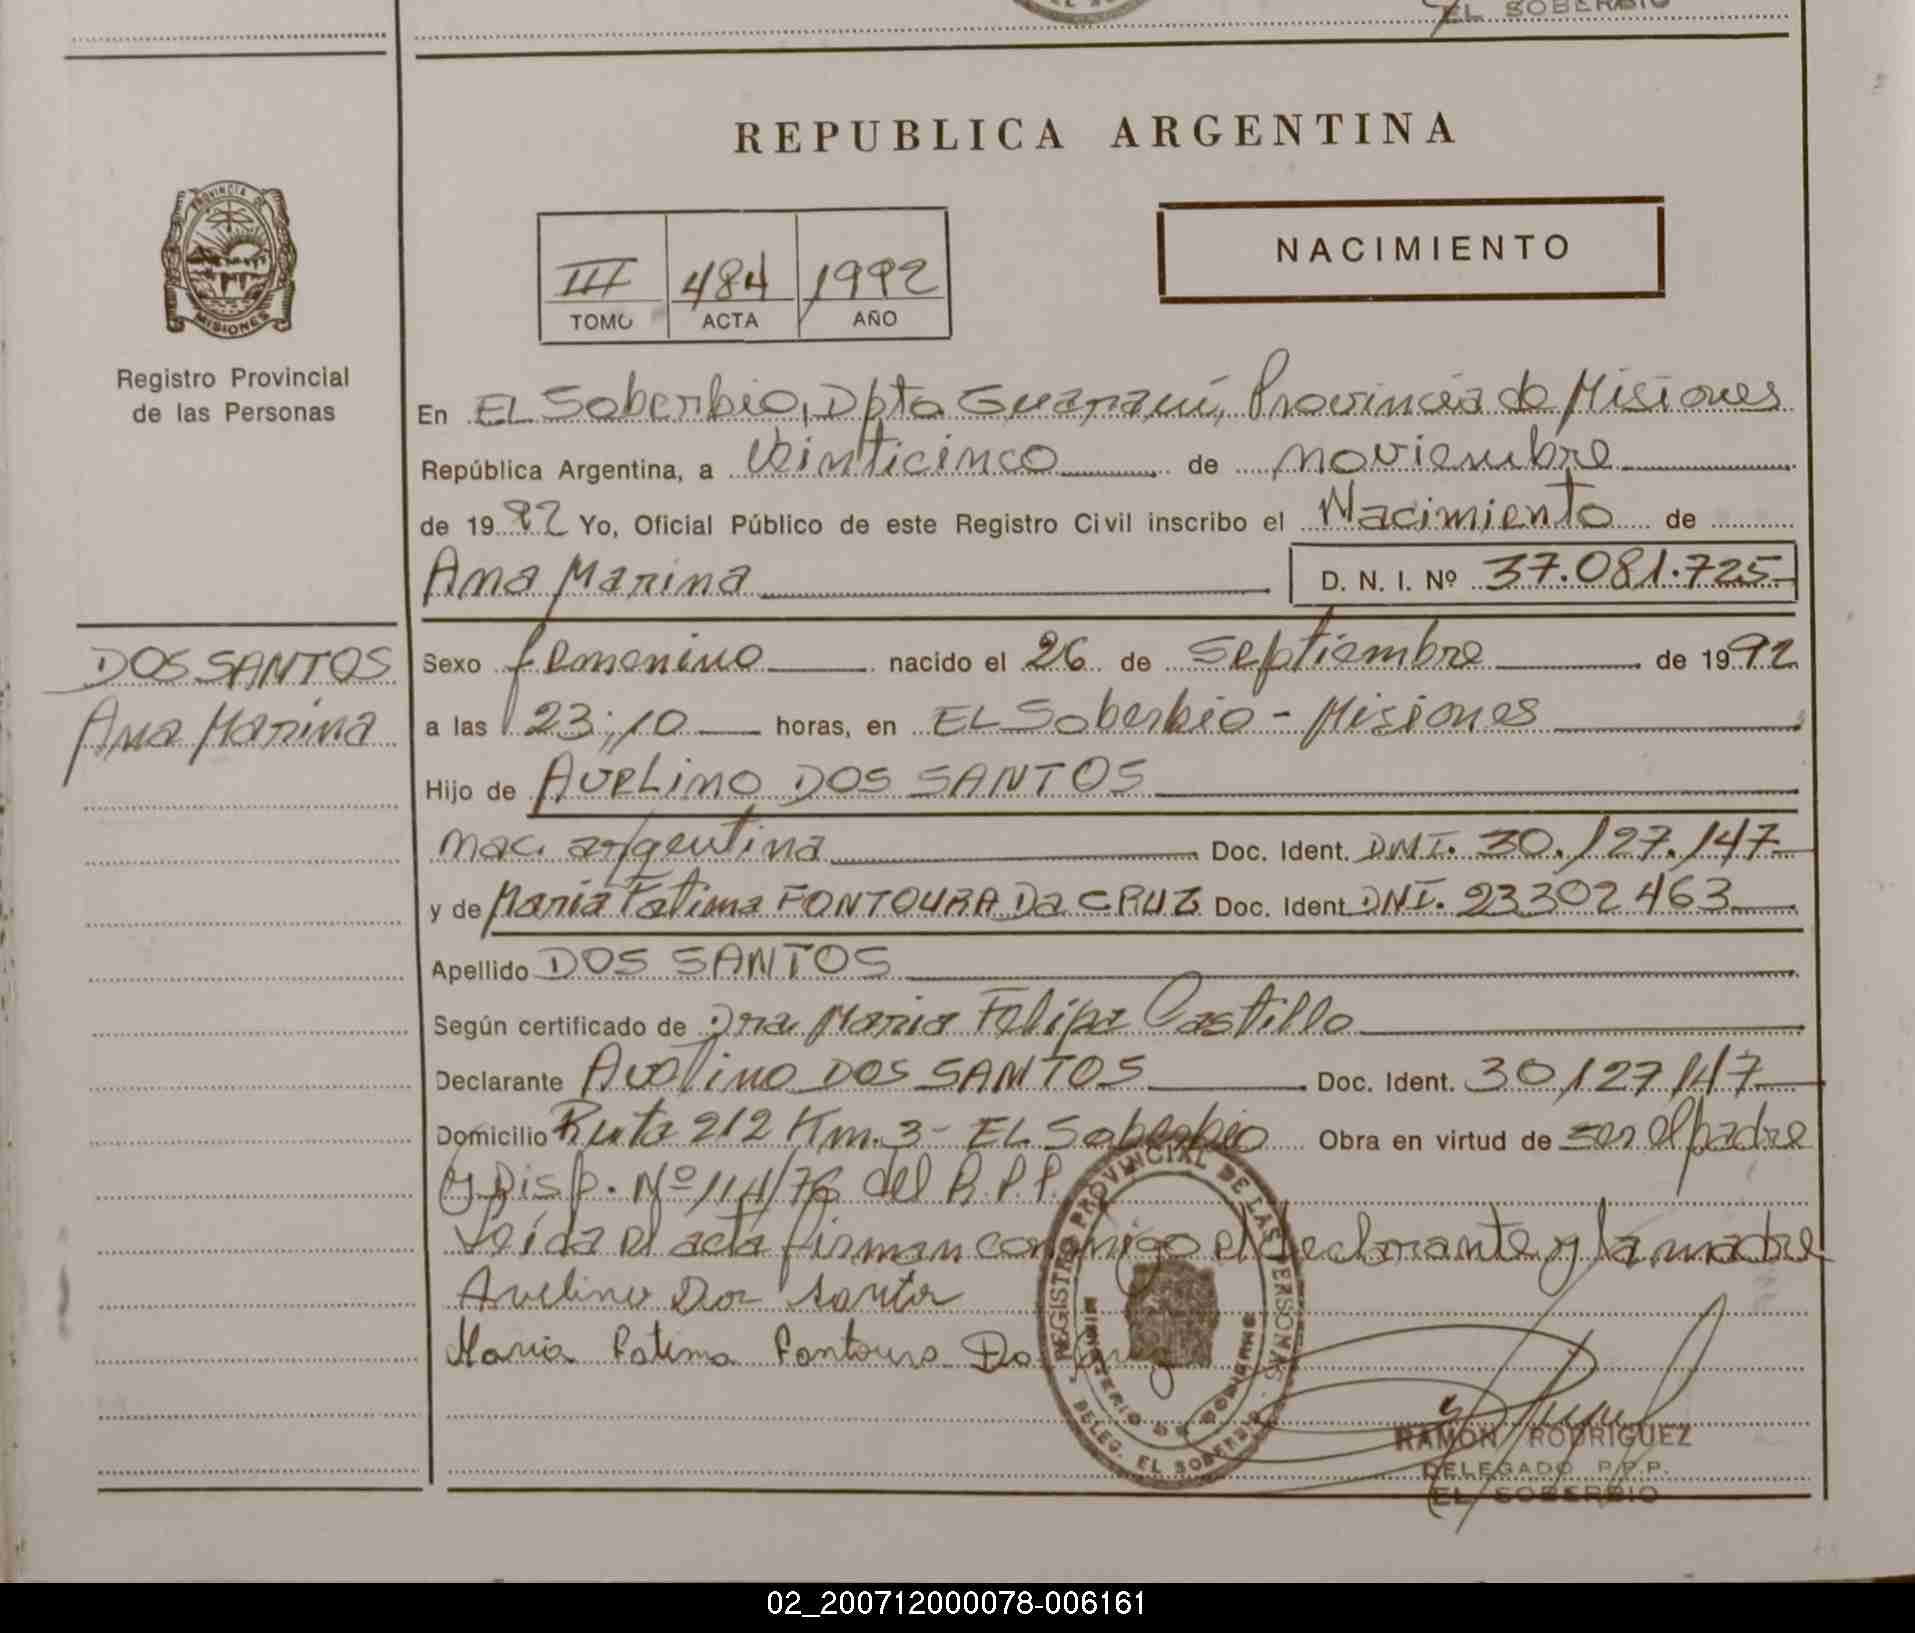 EL SOBERBIO
REPUBLICA ARGENTINA
PROVINCIA DE
MISIONES
Registro Provincial
de las Personas
III 484 1992
TOMO ACTA AÑO
NACIMIENTO
En EL Soberbio, Dpto Guaraní, Provincia de Misiones
República Argentina, a Veinticinco de noviembre
de 1992 Yo, Oficial Público de este Registro Civil inscribo el Nacimiento de
Ana Marina D. N. I. Nº 37.081.725
DOS SANTOS
Ana Marina
Sexo femenino nacido el 26 de septiembre de 1992
a las 23:10 horas, en EL Soberbio - Misiones
Hijo de AVELINO DOS SANTOS
nac. argentina Doc. Ident. DNI. 30.127.147
y de María Fatima FONTOURA Da CRUZ Doc. Ident DNI. 23302463
Apellido DOS SANTOS
Según certificado de Dra Maria Felipa Castillo
Declarante Avelino DOS SANTOS Doc. Ident. 30127147
Domicilio Ruta 212 Km. 3 - EL Soberbio Obra en virtud de ser el padre
y Disp. Nº 114/76 del R.P.P.
Leída el acta firman conmigo el declarante y la madre
Avelino Dos Santos
Maria Fatima Fontoura Da Cruz
REGISTRO PROVINCIAL DE LAS PERSONAS
MINISTERIO DE GOBIERNO
DELEG. EL SOBERBIO
RAMON RODRIGUEZ
DELEGADO R.P.P.
EL SOBERBIO
02_200712000078-006161